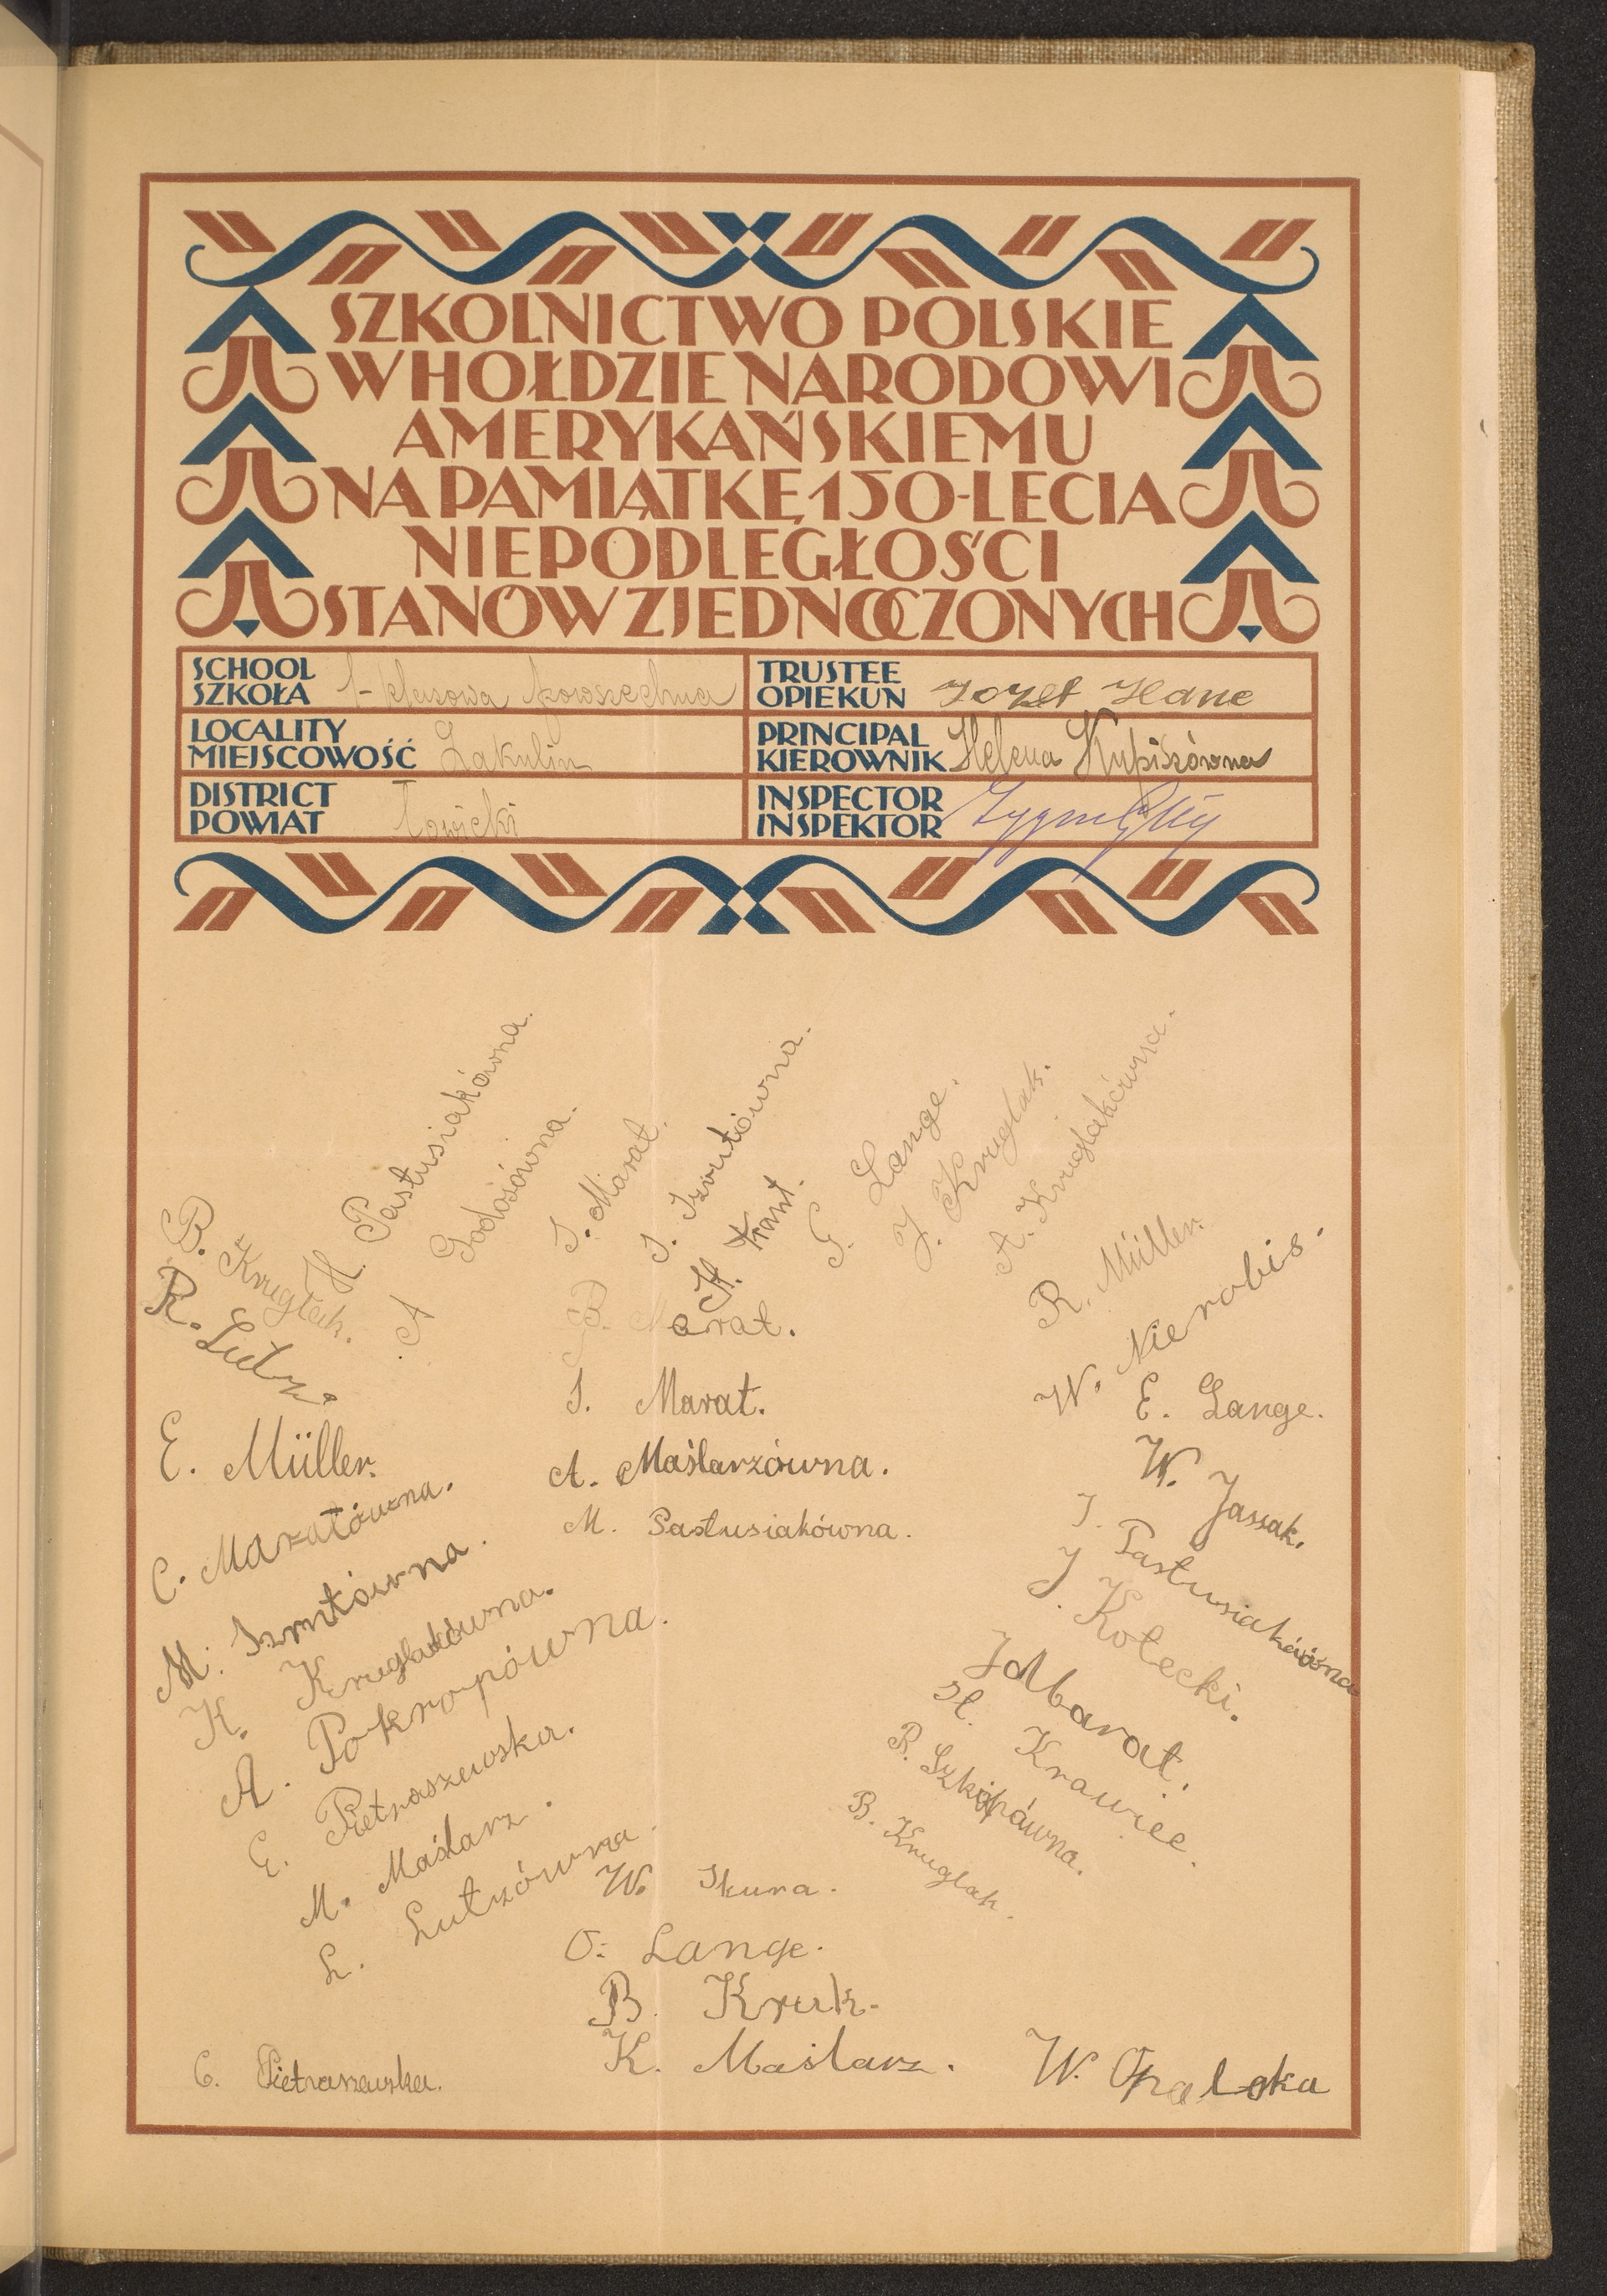 SZKOLNICTWO POLSKIE
W HOŁDZIE NARODOWI
AMERYKAŃSKIEMU
NA PAMIĄTKĘ 150-LECIA
NIEPODLEGŁOŚCI
STANÓW ZJEDNOCZONYCH
SCHOOL
SZKOŁA 1-klasowa powszechna
TRUSTEE
OPIEKUN Józef Hane
LOCALITY
MIEJSCOWOŚĆ Zakulin
PRINCIPAL
KIEROWNIK Helena Kupiszówna
DISTRICT
POWIAT Łowicki
INSPECTOR
INSPEKTOR
B. Kruglak.
R. Lutz.
H. Pastusiakówna.
A Godosówna.
J. Marat.
J. Szrutówna.
H. Krawt.
G. Lange.
J. Kruglak.
A. Kruglakówna.
R. Müller.
W. Nierobis.
Marat.
J. Marat.
A. Maślarzówna.
M. Pastusiakówna.
E. Müller.
C. Maratówna.
M. Szrutówna.
K. Kruglakówna.
A. Pokropówna.
E. Pietraszewska.
M. Maślarz.
L. Lutzówna.
E. Lange.
W. Jassak.
J. Pastusiakówna
J. Kotecki.
J Marat.
St. Krawiec.
R. Szkópówna.
B. Kruglak.
W. Skura.
O. Lange.
B. Kruk.
K. Maślarz.
C. Pietraszewska.
W. Opalska